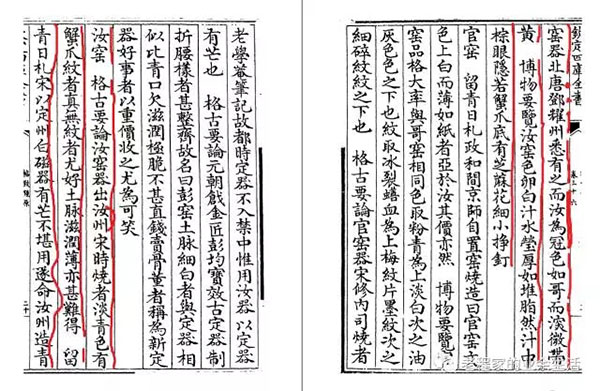 欽定四庫全書
卷三十六
窑器北唐鄧耀州悉有之而汝為冠色如哥而深微帶
黄　博物要覽汝窑色卵白汁水瑩厚如堆脂然汁中
棕眼隱若蟹爪底有芝蔴花細小掙釘
官窑　留青日札政和間京師自置窑燒造曰官窑文
色上白而薄如紙者亞於汝其價亦然　博物要覽官
窑品格大率與哥窑相同色取粉青為上淡白次之油
灰色色之下也紋取冰裂鱔血為上梅紋片墨紋次之
細碎紋紋之下也　格古要論官窑器宋修内司燒者
老學菴筆記故都時定器不入禁中惟用汝器以定器
有芒也　格古要論元朝戧金匠彭均寳效古定器制
折腰様者甚整齊故名曰彭窑土脉細白者與定器相
似比青口欠滋潤極脆不甚直錢賣骨董者稱為新定
器好事者以重價收之尤為可笑
汝窑　格古要論汝窑器出汝州宋時燒者淡青色有
蟹爪紋者真無紋者尤好土脉滋潤薄亦甚難得　留
青日札宋以定州白磁器有芒不堪用遂命汝州造青
格致鏡原